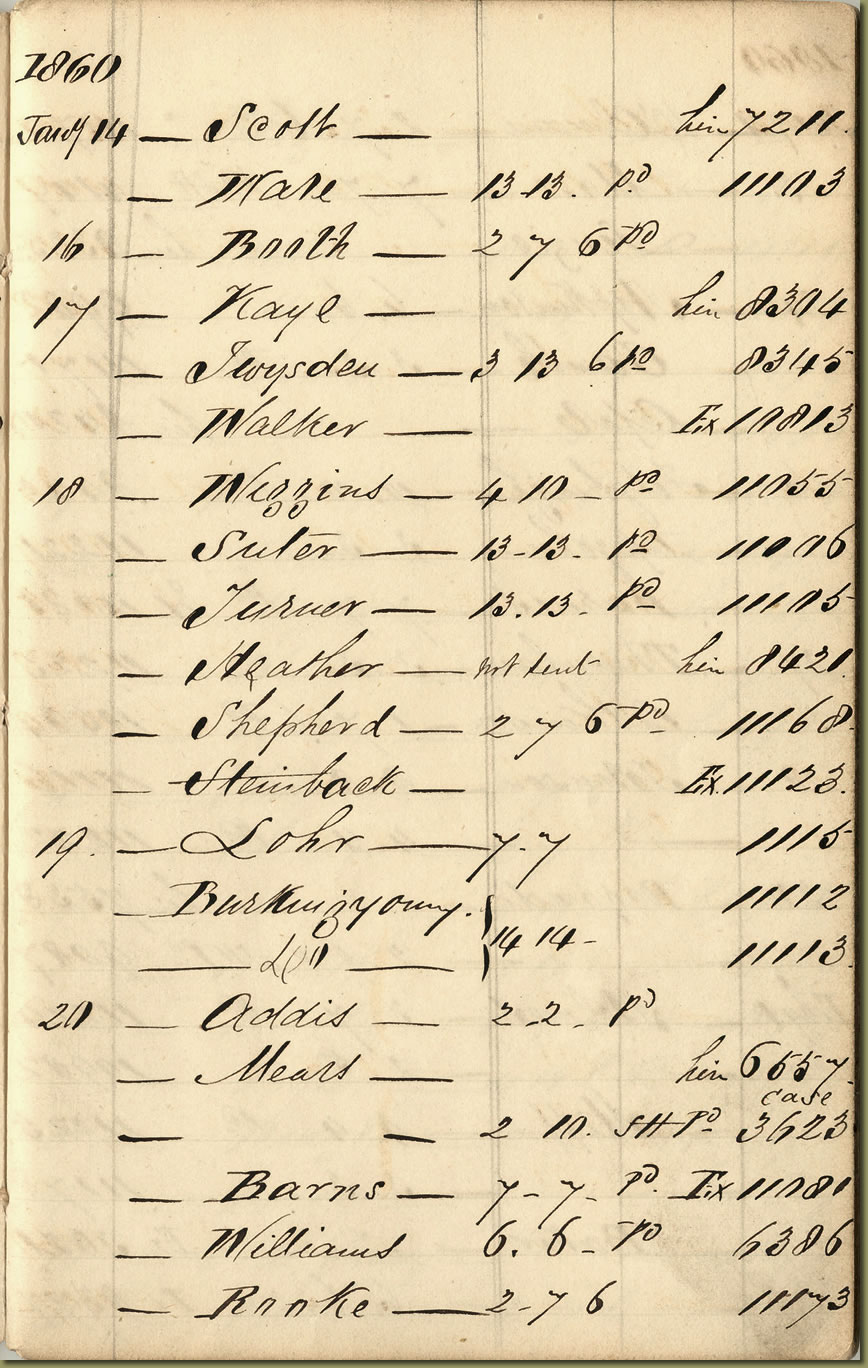 1860
Jany 14 — Scott — hin 7211.
— Ware — 13.13. Pd 11103
16 — Booth — 2 7 6 Pd
17 — Kaye — hin 8304
— Twysden — 3 13 6 Pd 8345
— Walker — Ex 10813
18 — Wiggins — 4 10 - Pd 11055
— Suter — 13-13- Pd 11006
— Turner — 13.13- Pd 11105
— Heather — not sent hin 8421.
— Shepherd — 2 7 6 Pd 11168.
— Steinback — Ex. 11123.
19. — Lohr — 7-7 1115
— Burkingyoung. 11112
— Do — 14 14 - 11113.
20 — Addis — 2-2- Pd
— Mears — hin 6557-
case
— — 2 10. SH Pd 3623
— Barns — 7-7- Pd. Ex 11081
— Williams 6. 6- Pd 6386
— Rooke — 2-7 6 11173